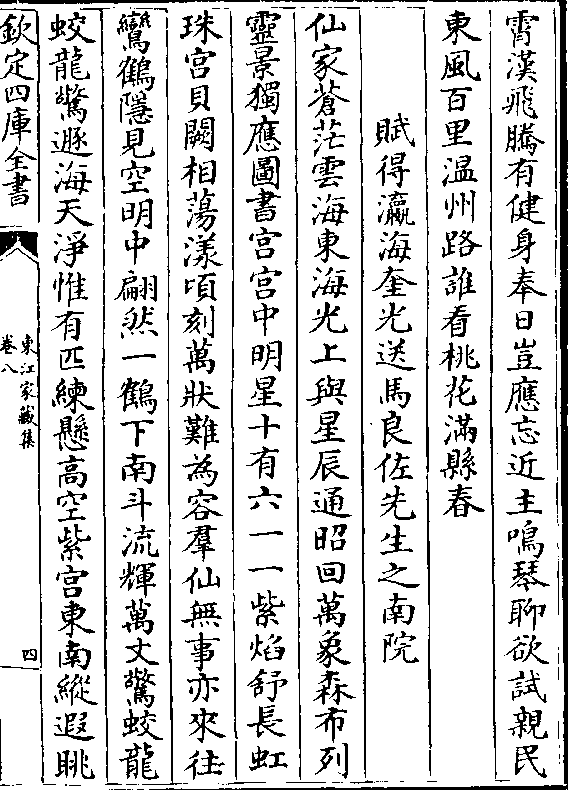 霄漢飛騰有健身奉日豈應忘近主鳴琴聊欲試親民
東風百里温州路誰看桃花滿縣春
賦得瀛海奎光送馬良佐先生之南院
仙家蒼茫雲海東海光上與星辰通昭回萬象森布列
靈景獨應圖書宫宫中明星十有六一一紫焰舒長虹
珠宫貝闕相蕩漾頃刻萬狀難為容羣仙無事亦來往
鸞鶴隱見空明中翩然一鶴下南斗流輝萬丈驚蛟龍
蛟龍驚遯海天淨惟有匹練懸高空紫宫東南縱遐眺
欽定四庫全書
東江家藏集
卷八
四